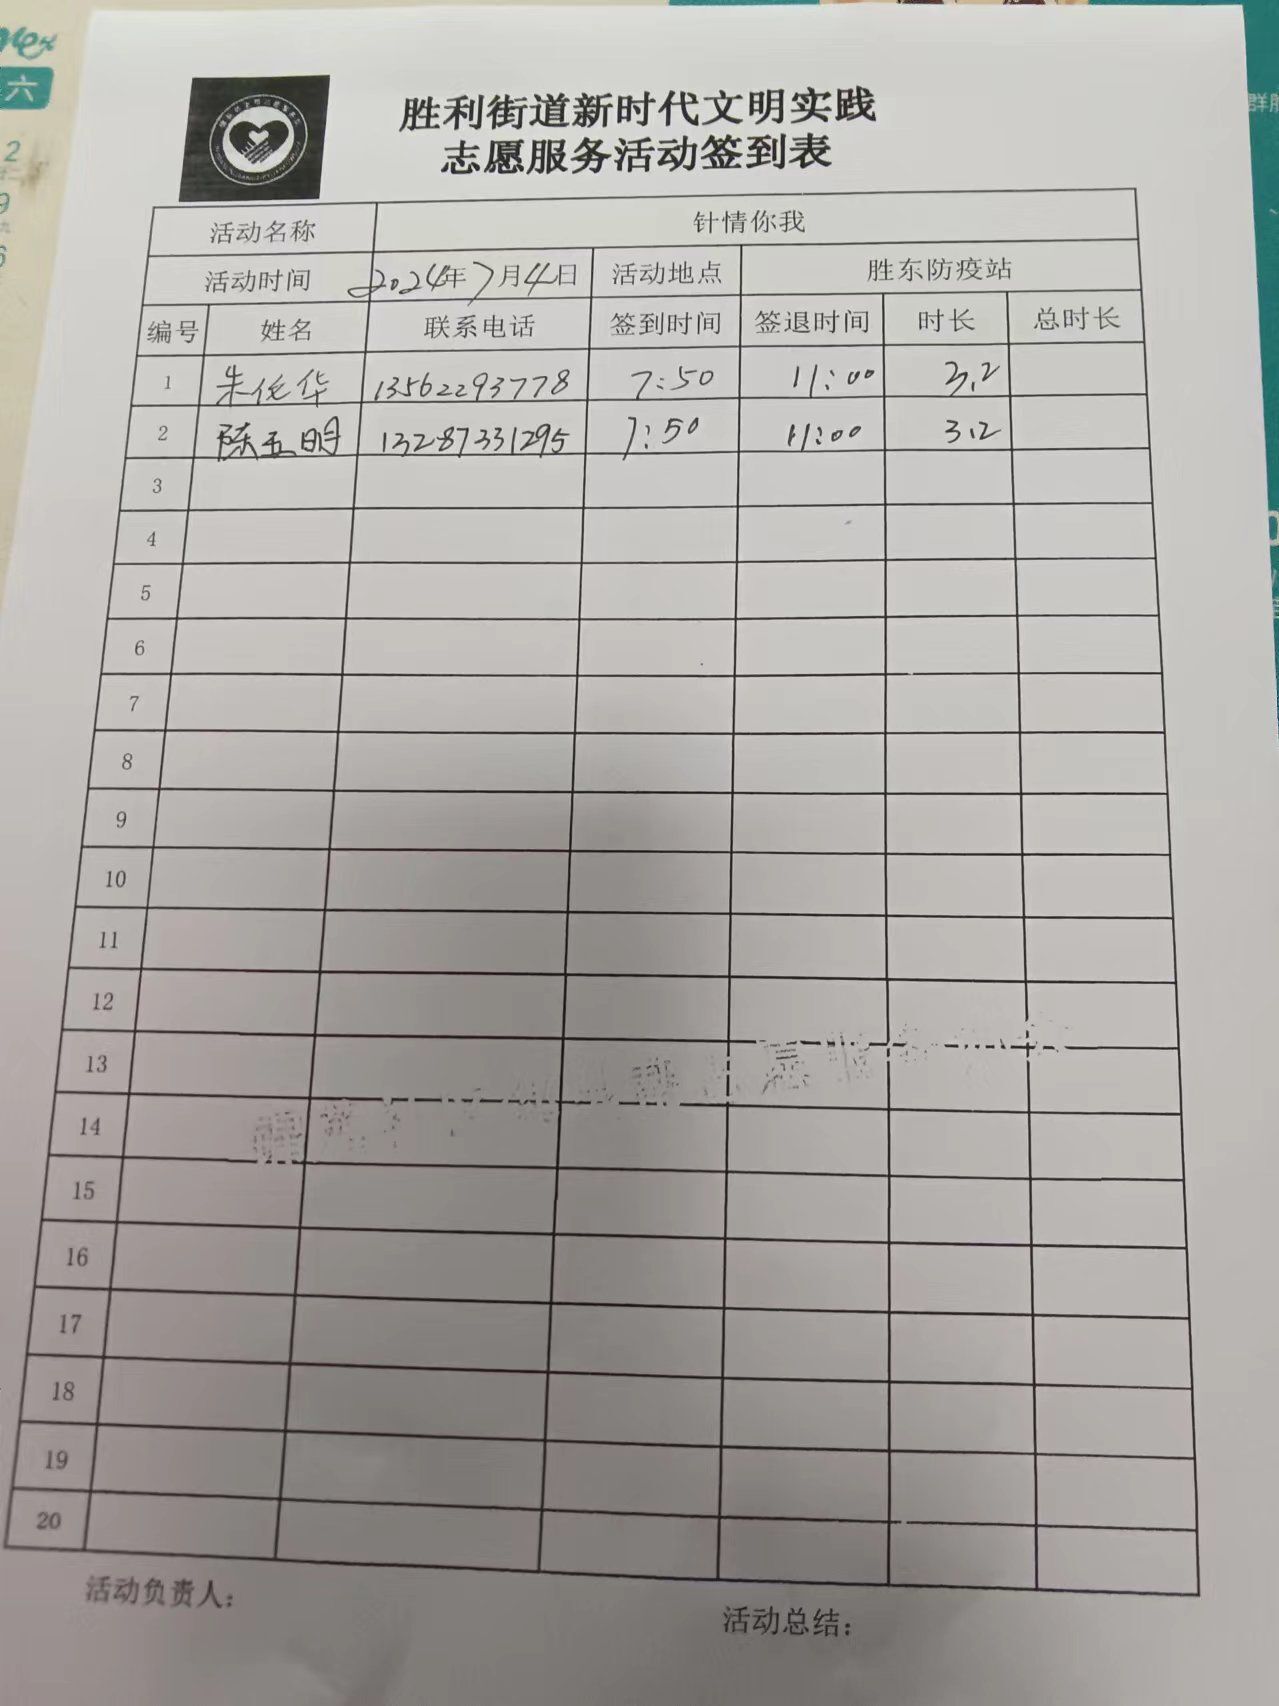 胜利街道新时代文明实践
志愿服务活动签到表
活动名称 针情你我
活动时间 2024年7月4日 活动地点 胜东防疫站
编号 姓名 联系电话 签到时间 签退时间 时长 总时长
1 朱华 13562293778 7:50 11:00 3.2
2 陈玉明 13287331295 7:50 11:00 3.2
3
4
5
6
7
8
9
10
11
12
13
14
15
16
17
18
19
20
活动负责人:
活动总结:
六
2
9